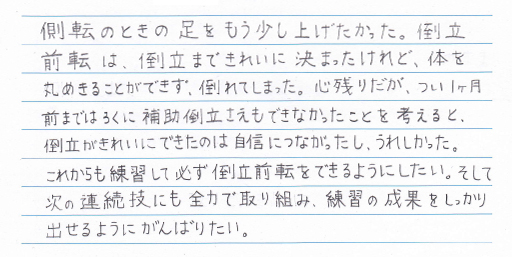 側転のときの足をもう少し上げたかった。倒立
前転は、倒立まできれいに決まったけれど、体を
丸めきることができず、倒れてしまった。心残りだが、つい1ヶ月
前まではろくに補助倒立さえもできなかったことを考えると、
倒立がきれいにできたのは自信につながったし、うれしかった。
これからも練習して必ず倒立前転をできるようにしたい。そして
次の連続技にも全力で取り組み、練習の成果をしっかり
出せるようにがんばりたい。